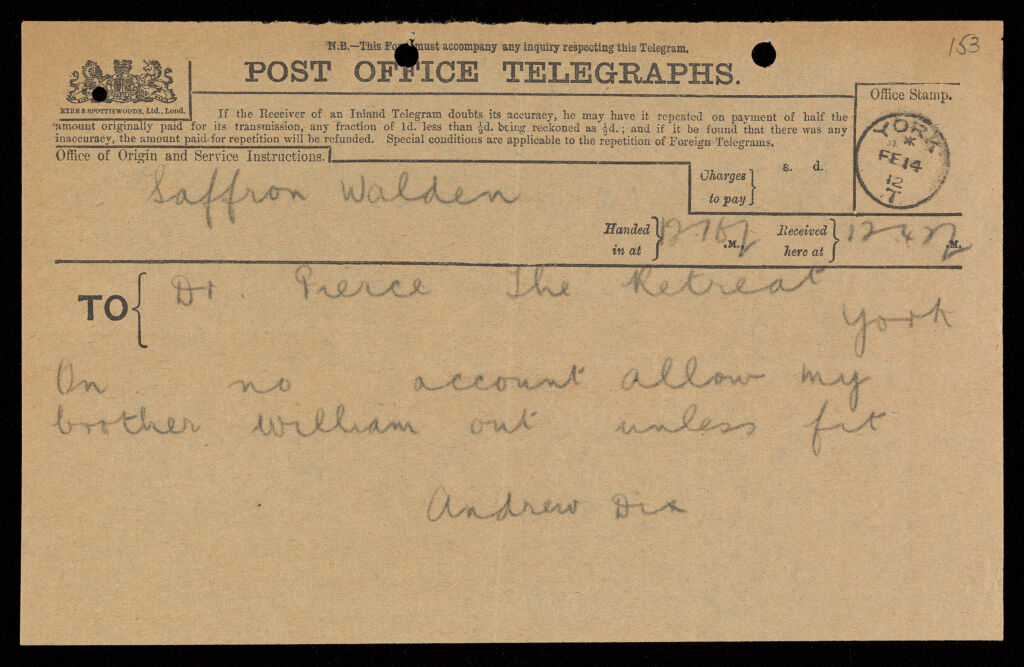 N.B.—This Form must accompany any inquiry respecting this Telegram.
153
POST OFFICE TELEGRAPHS.
EYRE & SPOTTISWOODE, Ltd., Lond.
If the Receiver of an Inland Telegram doubts its accuracy, he may have it repeated on payment of half the
amount originally paid for its transmission, any fraction of 1d. less than ½d. being reckoned as ½d.; and if it be found that there was any
inaccuracy, the amount paid for repetition will be refunded. Special conditions are applicable to the repetition of Foreign Telegrams.
Office Stamp.
YORK
FE 14
12
T
Office of Origin and Service Instructions.
Saffron Walden
Charges to pay
s. d.
Handed in at
.M.,
Received here at
.M.
TO
Dr. Pierce The Retreat
York
On no account allow my
brother William out unless fit
Andrew Dix